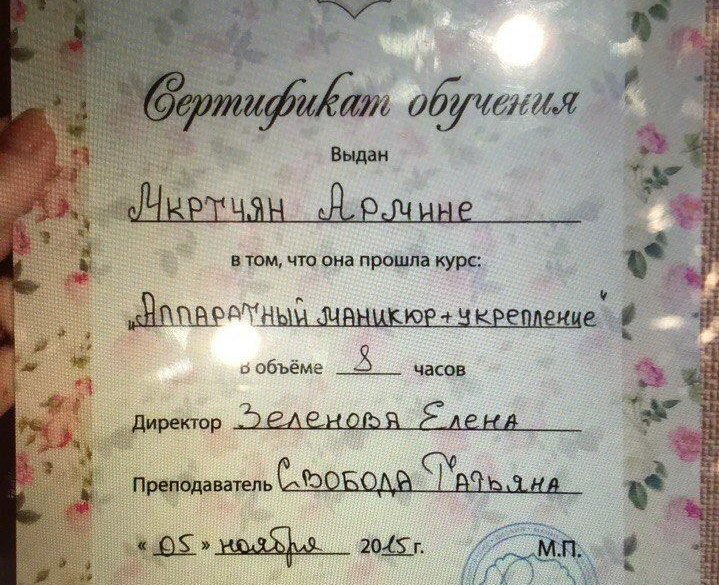 Сертификат обучения
Выдан
Мкртчян Армине
в том, что она прошла курс:
„Аппаратный маникюр + укрепление"
в объёме 8 часов
Директор Зеленова Елена
Преподаватель Свобода Татьяна
« 05 » ноября 2015 г. М.П.